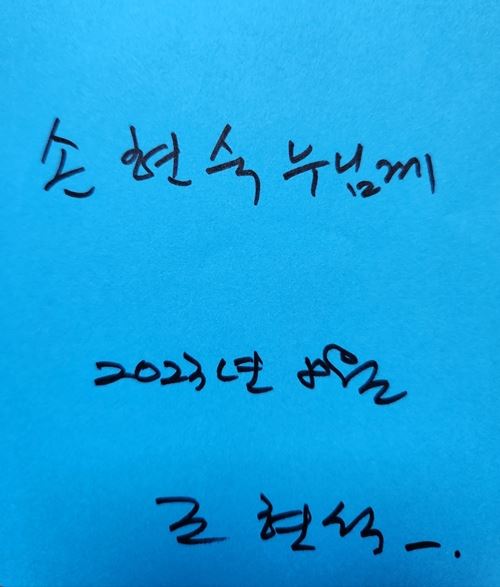 손 현숙 누님께
2023년 8월
조 현석 -.